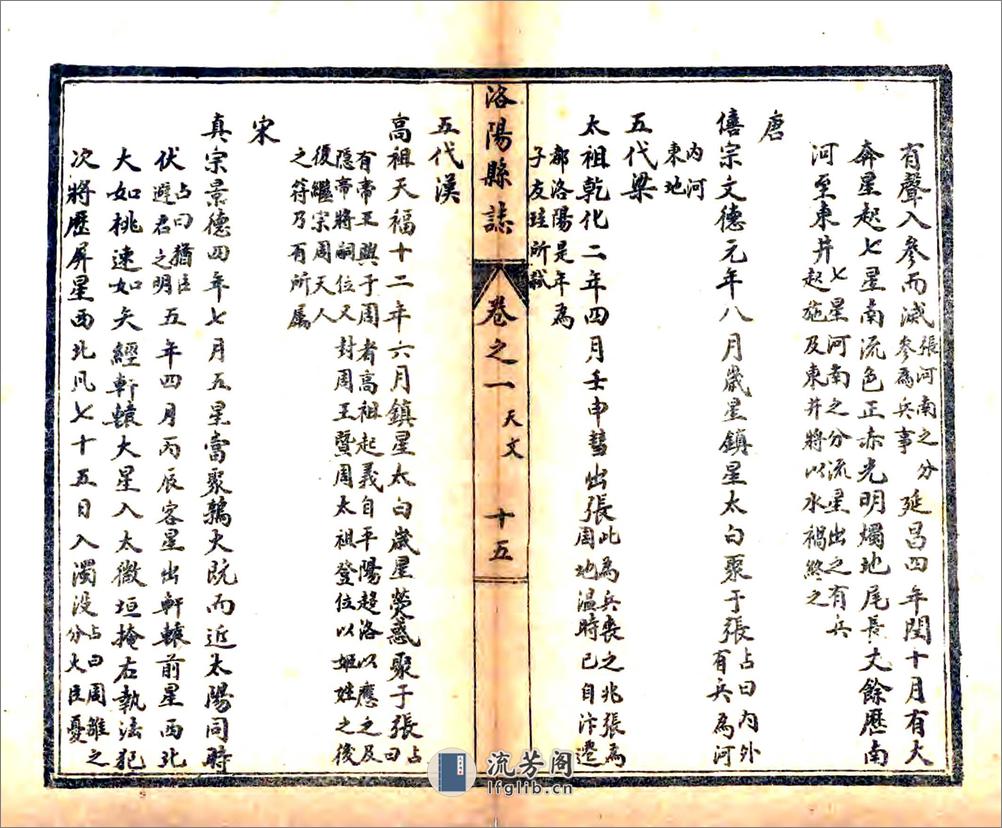 有聲入參而滅張河南之分參為兵事延昌四年閏十月有大
奔星起七星南流色正赤光明燭地尾長丈餘歷南
河至東井七星河南之分流星出之有兵起施及東井將以水禍終之
唐
僖宗文德元年八月歲星鎮星太白聚于張占曰內外有兵為河
內河東地
五代梁
太祖乾化二年四月壬申彗出張此為兵喪之兆張為周地溫時已自汴遷
都洛陽是年為子友珪所弒
洛陽縣誌 卷之一 天文 十五
五代漢
高祖天福十二年六月鎮星太白歲星熒惑聚于張占曰
有帝王興于周者高祖起義自平陽趨洛以應之及隱帝將嗣位又封周王暨周太祖登位以姬姓之後
復繼宗周天人之符乃有所屬
宋
真宗景德四年七月五星當聚鶉火既而近太陽同時
伏占曰猶臣避君之明五年四月丙辰客星出軒轅前星西北
大如桃速如矢經軒轅大星入太微垣掩右執法犯
次將歷屏星西北凡七十五日入濁沒占曰周雒之分大臣憂
流芳阁
lfglib.cn